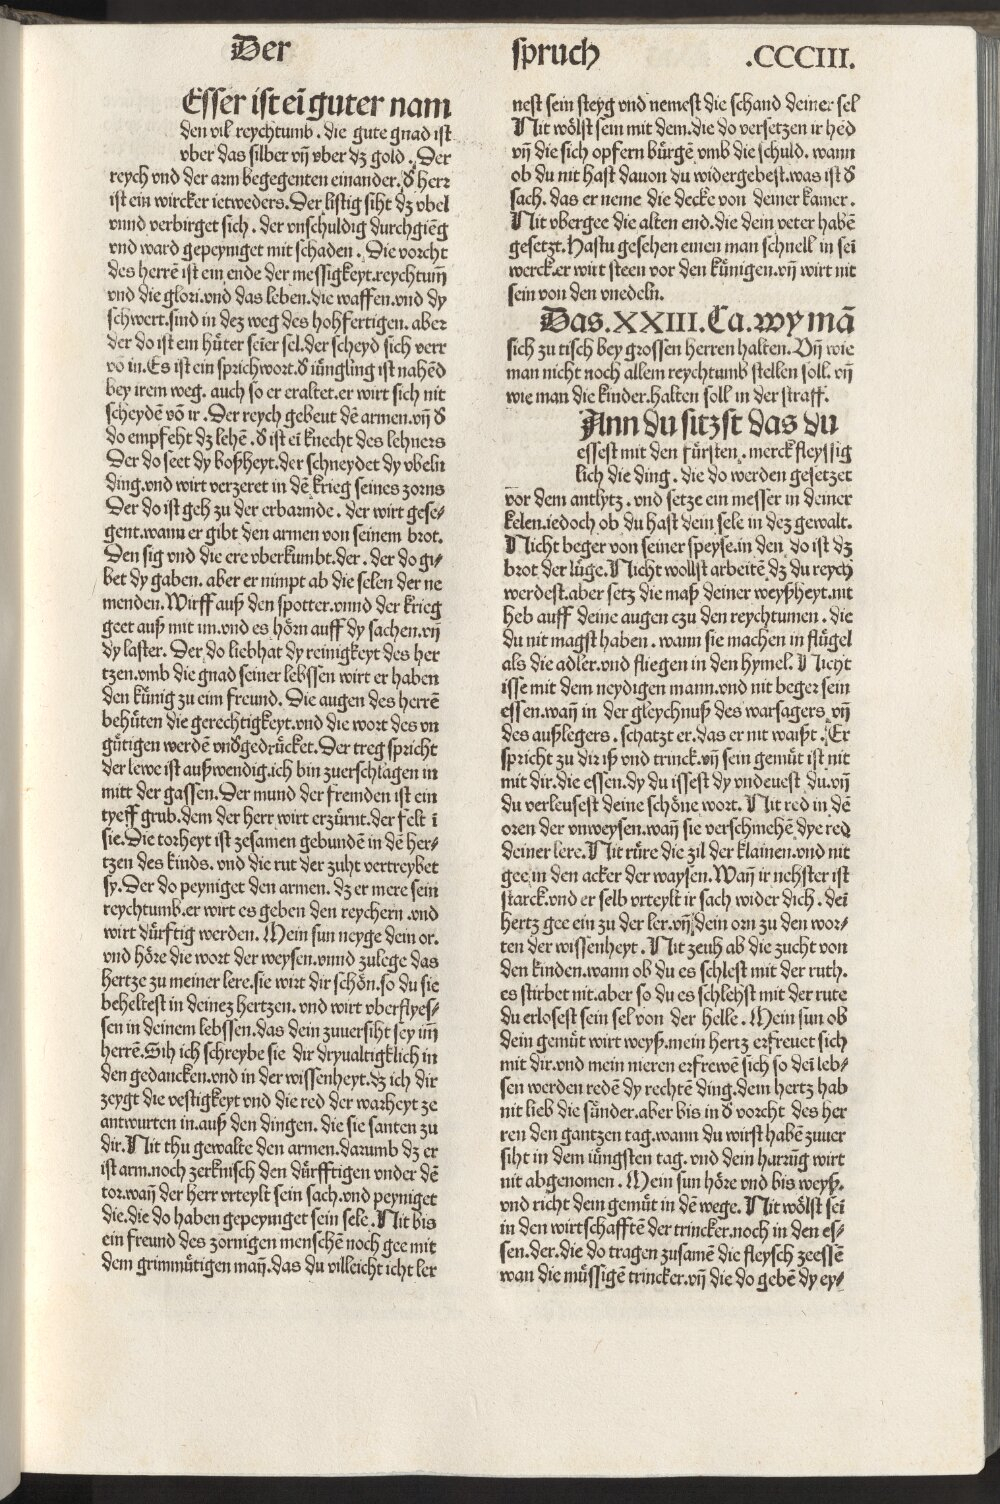 Der
spruch .CCCIII.
Esser ist eī guter nam
den vil reychtumb. die gute gnad ist
vber das silber vn̄ vber dz gold. Der
reych vnd der arm begegenten einander. d̕ herr
ist ein wircker ietweders. Der listig siht dz vbel
vnnd verbirget sich. der vnschuldig durchgieng
vnd ward gepeyniget mit schaden. Die vorcht
des herrē ist ein ende der messigkeyt. reychtum̄
vnd die glori. vnd das leben. die waffen. vnd dy
schwert. sind in dez weg des hohfertigen. aber
der do ist ein hüter seier sel. der scheyd sich verr
vō in. Es ist ein sprichwort. d̕ iüngling ist nahēd
bey irem weg. auch so er eraltet. er wirt sich nit
scheydē vō ir. Der reych gebeut dē armen. vn̄ d̕
do empfeht dz lehē. d̕ ist eī knecht des lehners
Der do seet dy boßheyt. der schneydet dy vbeln
ding. vnd wirt verzeret in dē krieg seines zorns
Der do ist geh zu der erbarmde. der wirt gese-
gent. wann er gibt den armen von seinem brot.
Den sig vnd die ere vberkumbt. der. der do gi-
bet dy gaben. aber er nimpt ab die selen der ne
menden. Wirff auß den spotter. vnnd der krieg
geet auß mit im. vnd es hörn auff dy sachen. vn̄
dy laster. Der do liebhat dy reinigkeyt des her
tzen. vmb die gnad seiner lebssen wirt er haben
den künig zu eim freund. Die augen des herrē
behüten die gerechtigkeyt. vnd die wort des vn
gütigen werdē vnd̕gedrücket. Der treg spricht
der lewe ist außwendig. ich bin zuerschlagen in
mitt der gassen. Der mund der fremden ist ein
tyeff grub. dem der herr wirt erzürnt. der felt ī
sie. Die torheyt ist zesamen gebundē in dē her-
tzen des kinds. vnd die rut der zuht vertreybet
sy. Der do peyniget den armen. dz er mere sein
reychtumb. er wirt es geben den reychern. vnd
wirt dürftig werden. Mein sun neyge dein or.
vnd höre die wort der weysen. vnnd zulege das
hertze zu meiner lere. sie wirt dir schön. so du sie
beheltest in deinez hertzen. vnd wirt vberflyes-
sen in deinem lebssen. das dein zuuersiht sey im̄
herrē. Sih ich schreybe sie dir dryualtigklich in
den gedancken. vnd in der wissenheyt. dz ich dir
zeygt die vestigkeyt vnd die red der warheyt ze
antwurten in. auß den dingen. die sie santen zu
dir. Nit thu gewalte den armen. darumb dz er
ist arm. noch zerknisch den dürfftigen vnder dē
tor. wan̄ der herr vrteylt sein sach. vnd peyniget
die. die do haben gepeyniget sein sele. Nit bis
ein freund des zornigen menschē noch gee mit
dem grimmütigen man̄. das du villeicht icht ler
nest sein steyg vnd nemest die schand deiner sel
Nit wölst sein mit dem. die do versetzen ir hēd
vn̄ die sich opfern bürgē vmb die schuld. wann
ob du nit hast dauon du widergebest. was ist d̕
sach. das er neme die decke von deiner kamer.
Nit vbergee die alten end. die dein veter habē
gesetzt. Hastu gesehen einen man schnell in sei
werck. er wirt steen vor den künigen. vn̄ wirt nit
sein von den vnedeln̄.
Das. XXIII. Ca. wy mā
sich zu tisch bey grossen herren halten. Vn̄ wie
man nicht noch allem reychtumb stellen soll. vn̄
wie man die kinder. halten soll in der straff.
Ann du sitzst das du
essest mit den fürsten. merck fleyssig
lich die ding. die do werden gesetzet
vor dem antlytz. vnd setze ein messer in deiner
kelen. iedoch ob du hast dein sele in dez gewalt.
Nicht beger von seiner speyse. in den do ist dz
brot der lüge. Nicht wollst arbeitē dz du reych
werdest. aber setz die maß deiner weyßheyt. nit
heb auff deine augen czu den reychtumen. die
du nit magst haben. wann sie machen in flügel
als die adler. vnd fliegen in den hymel. Nicht
isse mit dem neydigen mann. vnd nit beger sein
essen. wan̄ in der gleychnuß des warsagers vn̄
des außlegers. schatzt er. das er nit waißt. Er
spricht zu dir iß vnd trinck. vn̄ sein gemüt ist nit
mit dir. die essen. dy du issest dy vndeuest du. vn̄
du verleusest deine schöne wort. Nit red in dē
oren der vnweysen. wan̄ sie verschmehē dye red
deiner lere. Nit rüre die zil der klainen. vnd nit
gee in den acker der waysen. Wan̄ ir nehster ist
starck. vnd er selb vrteylt ir sach wider dich. dei
hertz gee ein zu der ler. vn̄ dein orn zu den wor-
ten der wissenheyt. Nit zeuh ab die zucht von
den kinden. wann ob du es schlest mit der ruth.
es stirbet nit. aber so du es schlehst mit der rute
du erlosest sein sel von der helle. Mein sun ob
dein gemüt wirt weyß. mein hertz erfreuet sich
mit dir. vnd mein nieren erfrewē sich so dei leb-
sen werden redē dy rechtē ding. dein hertz hab
nit lieb die sünder. aber bis in d̕ vorcht des her
ren den gantzen tag. wann du wirst habē zuuer
siht in dem iüngsten tag. vnd dein harrūg wirt
nit abgenomen. Mein sun höre vnd bis weyß.
vnd richt dein gemüt in dē wege. Nit wölst sei
in den wirtschafftē der trincker. noch in den es-
sen. der. die do tragen zusamē die fleysch zeessē
wan die müssigē trincker. vn̄ die do gebē dy ey-